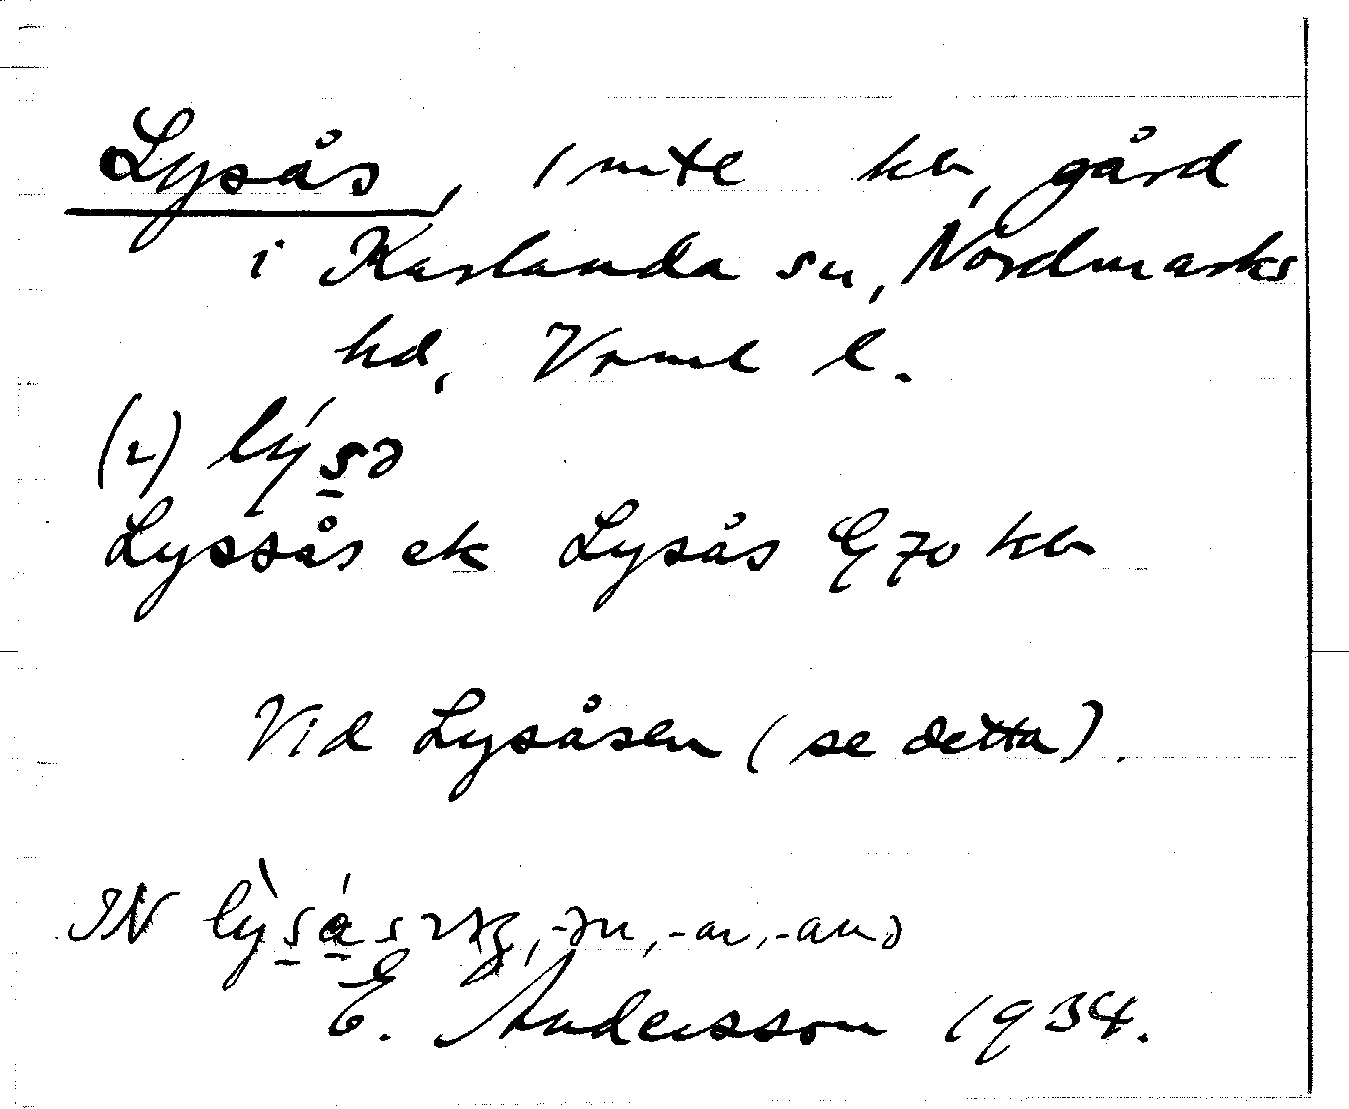 Lysås, 1 mtl kb, gård
i Karlanda sn, Nordmarks
hd, Vrml l.
(2) lýsə
Lyssås ek Lysås G 70 kb
Vid Lysåsen (se detta).
IN -ən, -ar, -anə
E. Andersson 1934.